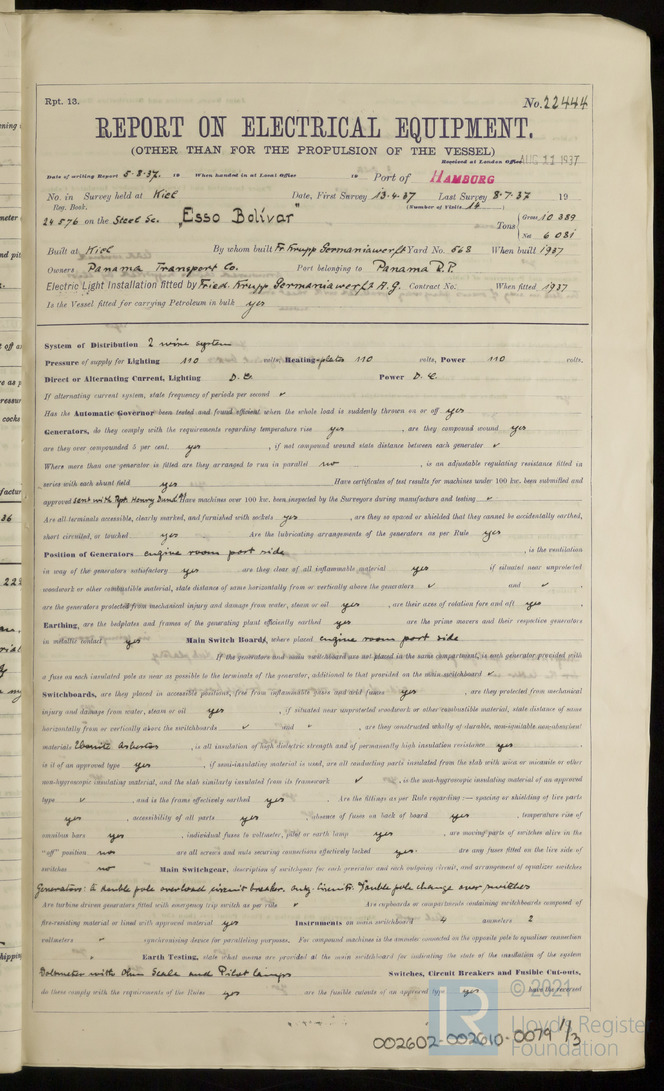 Rpt. 13. No. 22444
REPORT ON ELECTRICAL EQUIPMENT.
(OTHER THAN FOR THE PROPULSION OF THE VESSEL)
Received at London Office AUG 11 1937
Date of writing Report 5-8-37. 19 When handed in at Local Office 19 Port of HAMBURG
No. in Survey held at Kiel Date, First Survey 13-4-37 Last Survey 8-7-37 19
Reg. Book. (Number of Visits 14 )
24576 on the Steel Sc. "Esso Bolívar" Tons Gross 10 389
Net 6 081
Built at Kiel By whom built Fr. Krupp Germaniawerft Yard No. 568 When built 1937
Owners Panama Transport Co. Port belonging to Panama R.P.
Electric Light Installation fitted by Fried. Krupp Germaniawerft A.G. Contract No. When fitted 1937
Is the Vessel fitted for carrying Petroleum in bulk yes
System of Distribution 2 wire system
Pressure of supply for Lighting 110 volts, Heating plates 110 volts, Power 110 volts.
Direct or Alternating Current, Lighting D.C. Power D.C.
If alternating current system, state frequency of periods per second ✓
Has the Automatic Governor been tested and found efficient when the whole load is suddenly thrown on or off yes
Generators, do they comply with the requirements regarding temperature rise yes , are they compound wound yes
are they over compounded 5 per cent. yes , if not compound wound state distance between each generator ✓
Where more than one generator is fitted are they arranged to run in parallel no , is an adjustable regulating resistance fitted in
series with each shunt field yes Have certificates of test results for machines under 100 kw. been submitted and
approved sent with Rpt. Have machines over 100 kw. been inspected by the Surveyors during manufacture and testing ✓
Are all terminals accessible, clearly marked, and furnished with sockets yes , are they so spaced or shielded that they cannot be accidentally earthed,
short circuited, or touched yes Are the lubricating arrangements of the generators as per Rule yes
Position of Generators engine room port side , is the ventilation
in way of the generators satisfactory yes are they clear of all inflammable material yes if situated near unprotected
woodwork or other combustible material, state distance of same horizontally from or vertically above the generators ✓ and ✓
are the generators protected from mechanical injury and damage from water, steam or oil yes , are their axes of rotation fore and aft yes
Earthing, are the bedplates and frames of the generating plant efficiently earthed yes are the prime movers and their respective generators
in metallic contact yes Main Switch Boards, where placed engine room port side
If the generators and main switchboard are not placed in the same compartment, is each generator provided with
a fuse on each insulated pole as near as possible to the terminals of the generator, additional to that provided on the main switchboard ✓
Switchboards, are they placed in accessible positions, free from inflammable gases and acid fumes yes , are they protected from mechanical
injury and damage from water, steam or oil yes , if situated near unprotected woodwork or other combustible material, state distance of same
horizontally from or vertically above the switchboards ✓ and ✓ , are they constructed wholly of durable, non-ignitable non-absorbent
materials Ebonite Asbestos , is all insulation of high dielectric strength and of permanently high insulation resistance yes
is it of an approved type yes , if semi-insulating material is used, are all conducting parts insulated from the slab with mica or micanite or other
non-hygroscopic insulating material, and the slab similarly insulated from its framework ✓ , is the non-hygroscopic insulating material of an approved
type ✓ , and is the frame effectively earthed yes . Are the fittings as per Rule regarding :— spacing or shielding of live parts
yes , accessibility of all parts yes absence of fuses on back of board yes , temperature rise of
omnibus bars yes , individual fuses to voltmeter, pilot or earth lamp yes , are moving parts of switches alive in the
"off" position no are all screws and nuts securing connections effectively locked yes are any fuses fitted on the live side of
switches no Main Switchgear, description of switchgear for each generator and each outgoing circuit, and arrangement of equalizer switches
Generators: a double pole overload circuit breaker, outg. Circuits: Double pole change over switches
Are turbine driven generators fitted with emergency trip switch as per rule ✓ Are cupboards or compartments containing switchboards composed of
fire-resisting material or lined with approved material yes Instruments on main switchboard 4 ammeters 2
voltmeters ✓ synchronising device for paralleling purposes. For compound machines is the ammeter connected on the opposite pole to equaliser connection
Earth Testing, state what means are provided at the main switchboard for indicating the state of the insulation of the system
Voltmeter with Ohm Scale and Pilot lamps Switches, Circuit Breakers and Fusible Cut-outs,
do these comply with the requirements of the Rules yes are the fusible cutouts of an approved type yes have the reversed
© 2021
Lloyd's Register
Foundation
002602-002610-0079 1/3